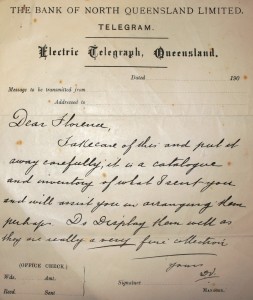 THE BANK OF NORTH QUEENSLAND LIMITED.
TELEGRAM.
Electric Telegraph, Queensland.
Dated 190
Message to be transmitted from
Addressed to
Dear Florence,
Take care of this and put it
away carefully, it is a catalogue
and inventory of what I sent you
and will assist you in arranging them
perhaps. Do Display them well as
they are really a very fine collection
yours
(OFFICE CHECK.)
Wds. Amt.
Recd. Sent
Signature
MANAGER.